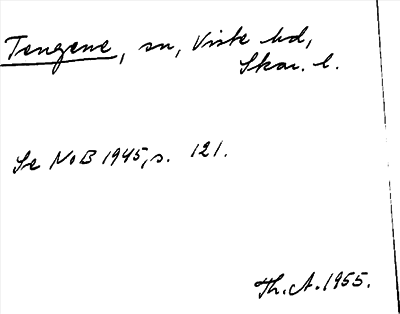 Tengene, sn, Viste hd,
Skar. l.
Se NoB 1945, s. 121.
Th. A. 1955.